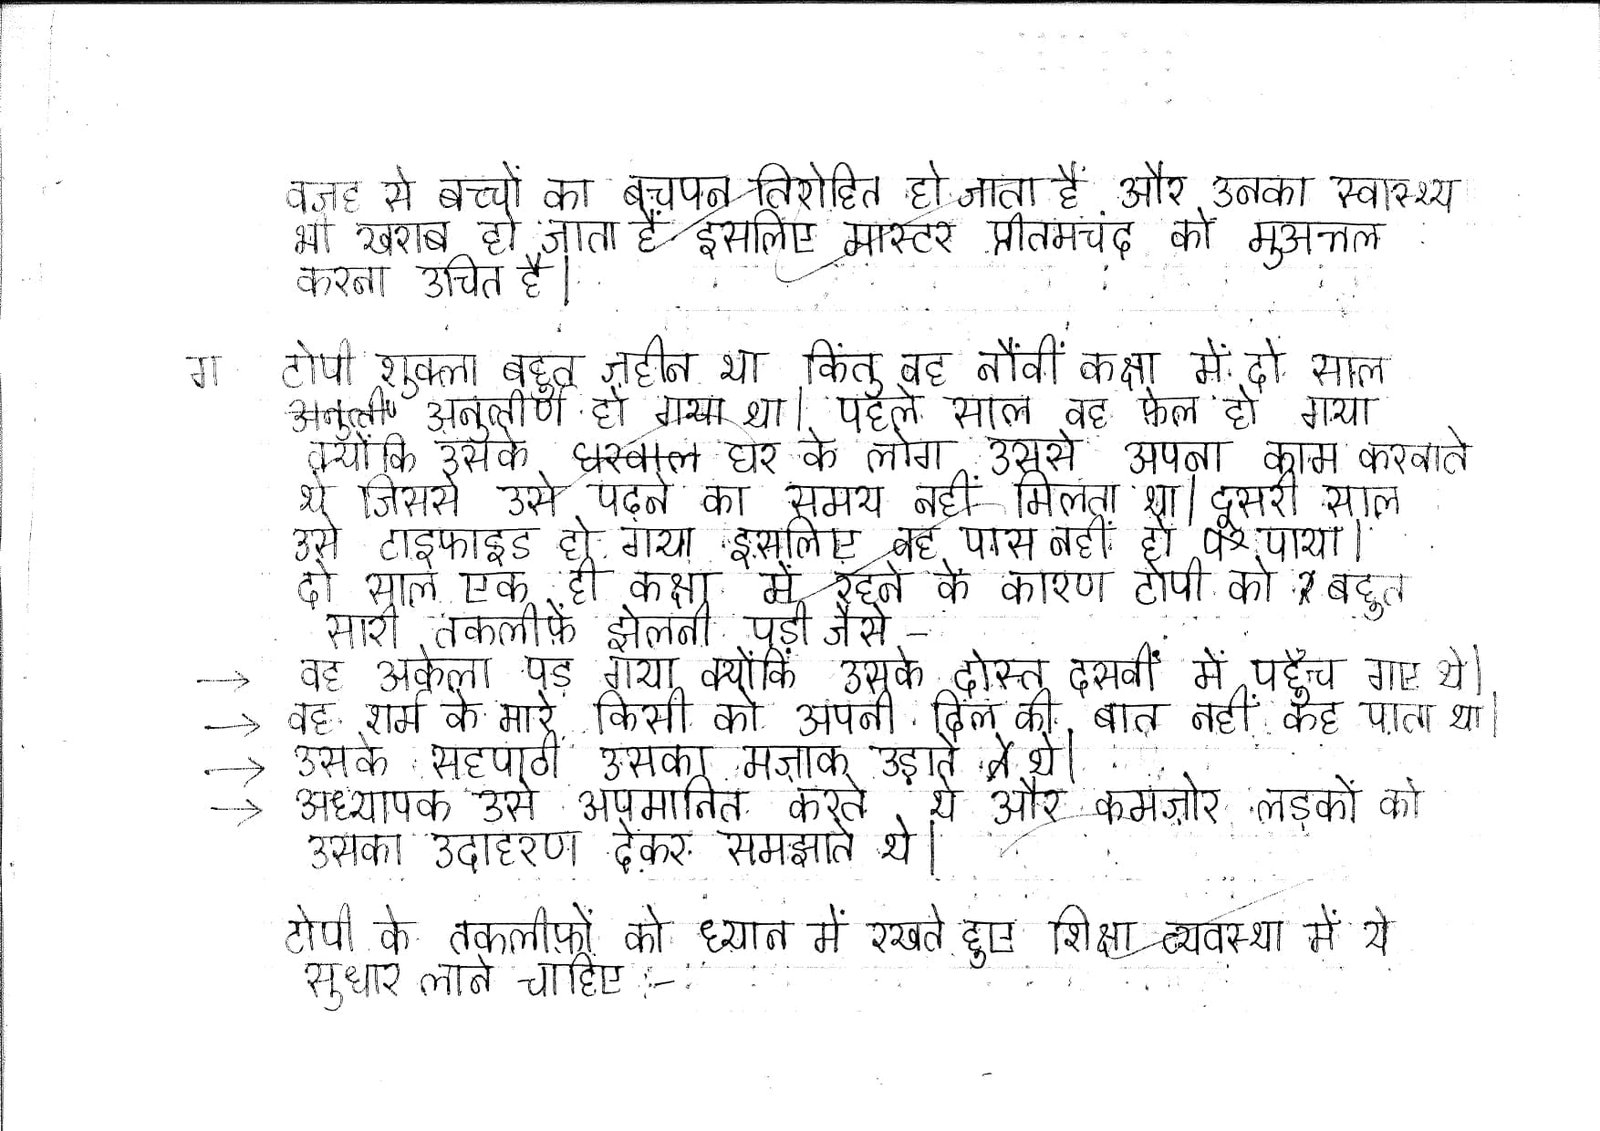 वजह से बच्चों का बचपन तिरोहित हो जाता हैं और उनका स्वास्थ्य
भी खराब हो जाता हैं इसलिए मास्टर प्रीतमचंद को मुअत्तल
करना उचित है|
ग टोपी शुक्ला बहुत ज़हीन था किंतु वह नौंवीं कक्षा में दो साल
अनुत्ती अनुत्तीर्ण हो गया था| पहले साल वह फ़ेल हो गया
क्योंकि उसके घरवाल घर के लोग उससे अपना काम करवाते
थे जिससे उसे पढ़ने का समय नहीं मिलता था| दूसरी साल
उसे टाइफाइड हो गया इसलिए वह पास नहीं हो पाया|
दो साल एक ही कक्षा में रहने के कारण टोपी को बहुत
सारी तकलीफ़ें झेलनी पड़ी जैसे –
→ वह अकेला पड़ गया क्योंकि उसके दोस्त दसवीं में पहुँच गए थे|
→ वह शर्म के मारे किसी को अपनी दिल की बात नहीं कह पाता था|
→ उसके सहपाठी उसका मज़ाक उड़ाते थे|
→ अध्यापक उसे अपमानित करते थे और कमज़ोर लड़कों को
उसका उदाहरण देकर समझाते थे|
टोपी के तकलीफ़ों को ध्यान में रखते हुए शिक्षा व्यवस्था में ये
सुधार लाने चाहिए :-